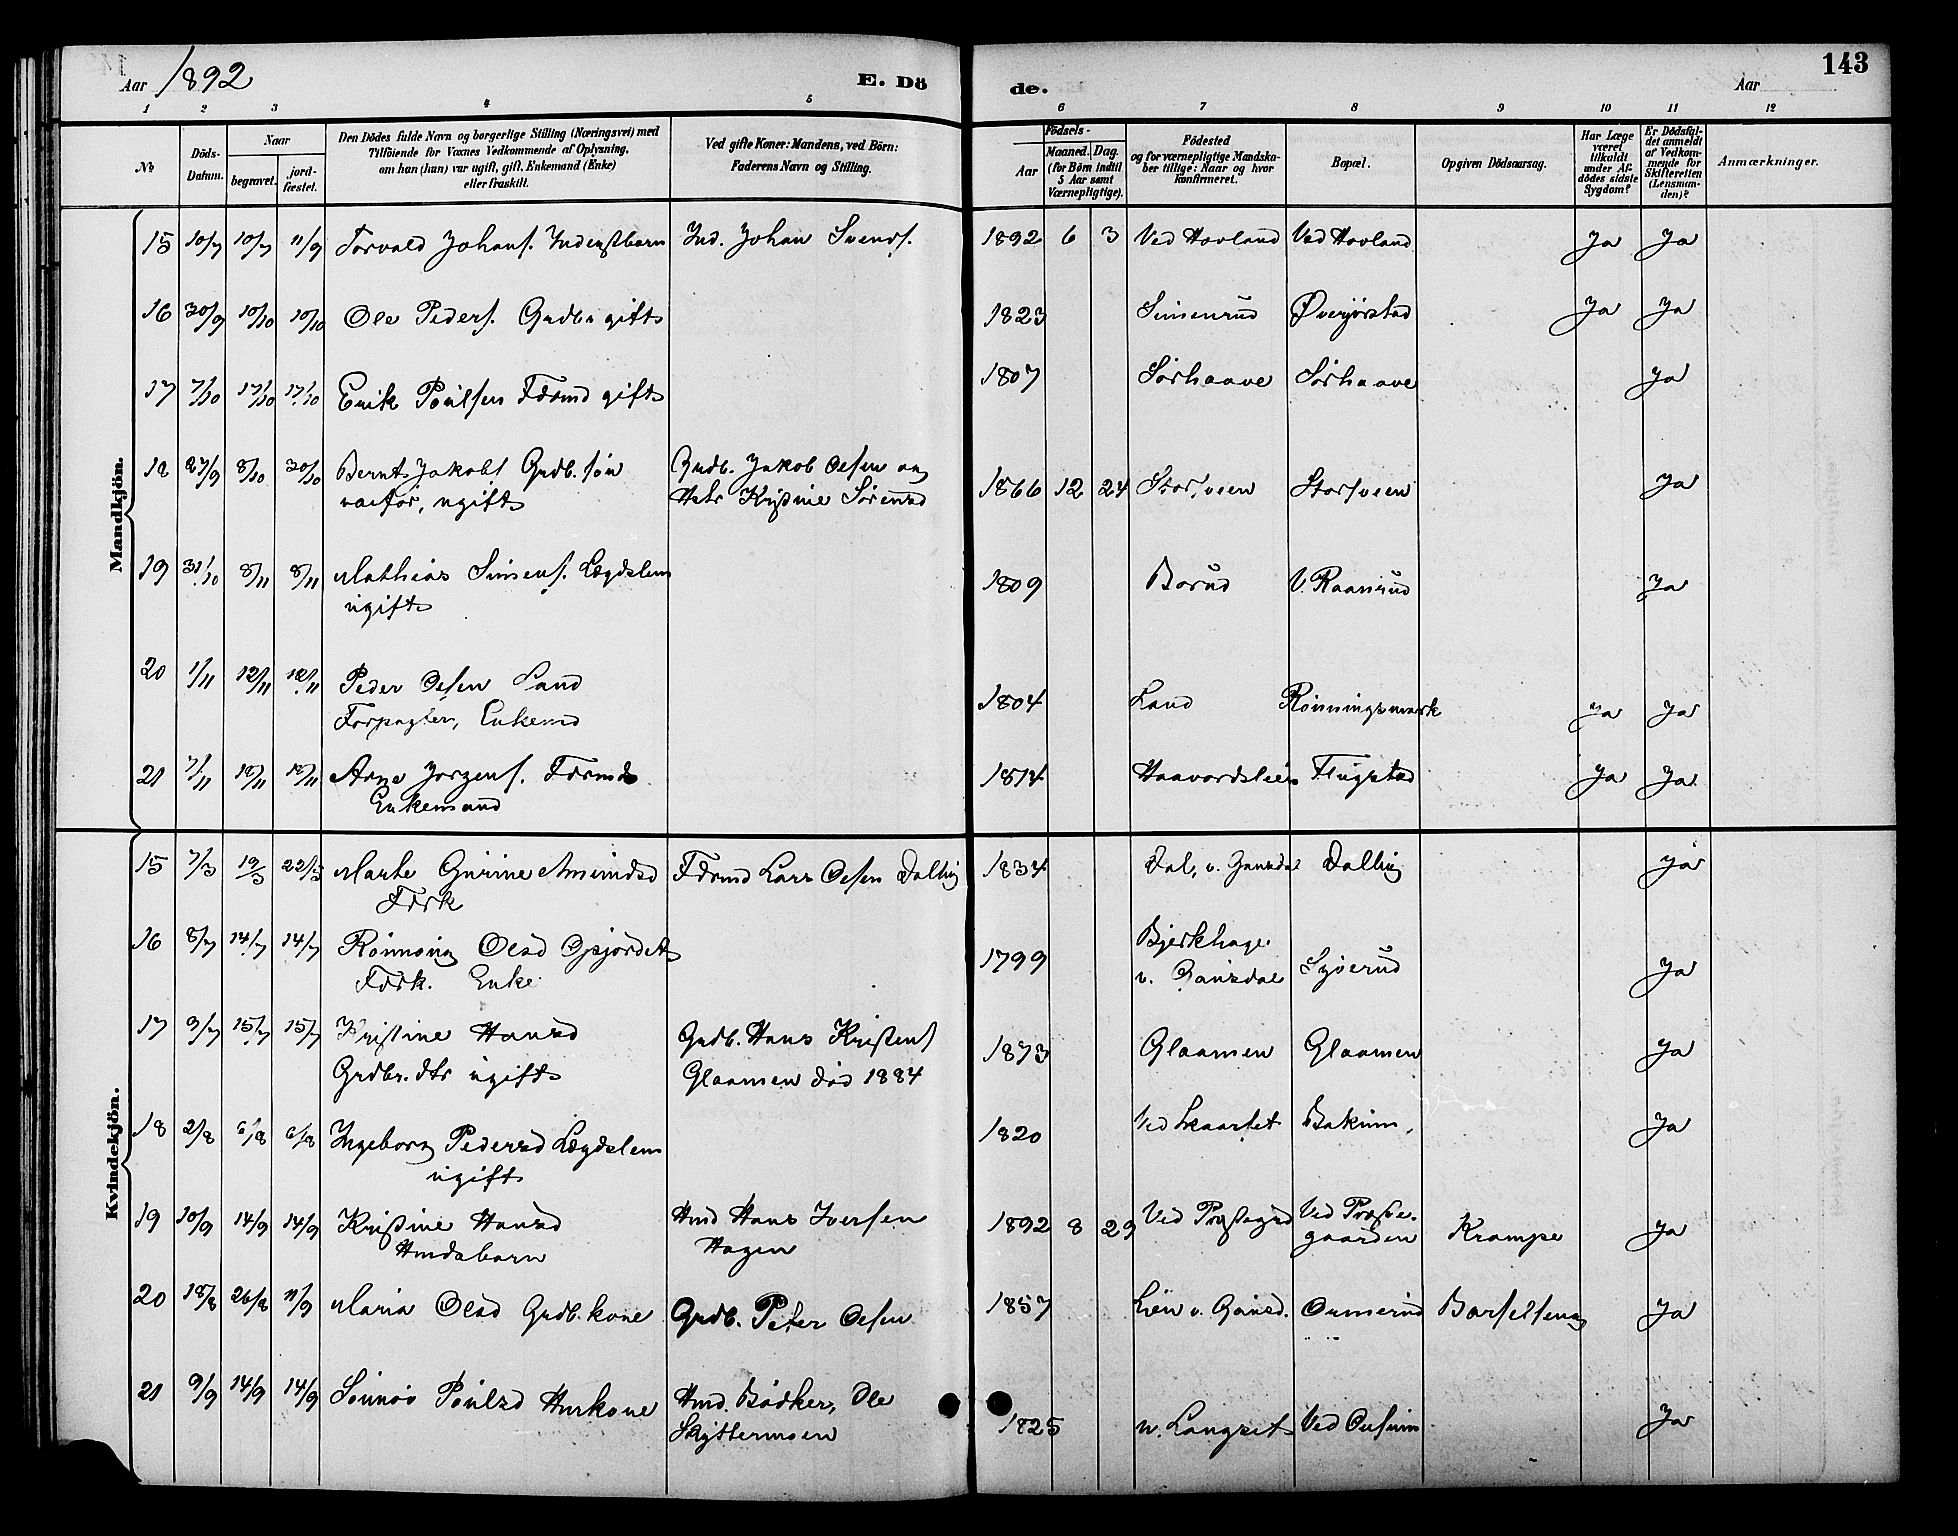 Aar 1892
E. Döde.
143
Aar
1 2 3 4 5 6 7 8 9 10 11 12
No
Döds-Datum.
Naar
begravet. jordfæstet.
Den Dödes fulde Navn og borgerlige Stilling (Næringsvei) med
Tilföiende for Voxnes Vedkommende af Oplysning,
om han (hun) var ugift, gift, Enkemand (Enke)
eller fraskilt.
Ved gifte Koner: Mandens, ved Börn:
Faderens Navn og Stilling.
Födsels-
Aar Maaned. Dag.
(for Börn indtil 5 Aar samt Værnepligtige).
Födested
og for værnepligtige Mandskaber tillige: Naar og hvor konfirmeret.
Bopæl.
Opgiven Dödsaarsag.
Har Læge været tilkaldt under Afdödes sidste Sygdom?
Er Dödsfaldet anmeldt af Vedkommende for Skifteretten (Lensmanden)?
Anmærkninger.
Mandkjön.
15 10/7 10/7 11/9 Torvald Johans. Inderstbarn Ind. Johan Svends. 1892 6 3 Ved Hovland Ved Hovland Ja Ja
16 30/9 10/10 10/10 Ole Peders. Grdbr gift 1823 Simenrud Øverjørstad Ja Ja
17 7/10 17/10 17/10 Erik Poulsen Fdrmd gift 1807 Sørhaave Sørhaave Ja
18 27/9 8/10 30/10 Bernt Jakobs Grdb. søn Grdb. Jakob Olsen og
ugift Kristine Sørensd 1866 12 24 Storsveen Storsveen Ja
19 31/10 8/11 8/11 Mathias Simens. Lægdslem
ugift 1809 Borud V. Raanrud Ja
20 1/11 12/11 12/11 Peder Olsen Land
Forpagter, Enkemd 1804 Land Rønningsmark Ja Ja
21 7/11 12/11 12/11 Arne Jørgens. Fdrmd
Enkemand 1814 Haavardslien Flugstad Ja Ja
Kvindekjön.
15 7/3 19/3 22/5 Marte Gurine Amundsd Fdrmd Lars Olsen Dalbÿ 1834 Dal, v. Gausdal Dalbÿ Ja
Fdrk
16 8/7 14/7 14/7 Rønnoug Olsd
Fdrk. Enke 1799 Bjerkhage
v. Gausdal Ja
17 9/7 15/7 15/7 Kristine Hansd Grdb. Hans Kristens
Grdbr. dtr ugift Glaamen död 1884 1873 Glaamen Glaamen Ja
18 2/8 6/8 6/8 Ingeborg Pedersd Lægdslem
ugift 1820 Ved Skaartet Bakum Ja
19 10/9 14/9 14/9 Kristine Hansd Hmd Hans Iversen
Hmdsbarn Hagen 1892 8 29 Ved Præstegrd Ved Præstegaarden Krampe Ja
20 18/8 26/8 11/9 Maria Olsd Grdb. kone Grdb. Peter Olsen 1857 Lien v. Gausd. Barselseng Ja
21 9/9 14/9 14/9 Sønnøv Poulsd Hmkone Hmd. Bødker, Ole
Skyttermoen 1825 v. Langset Ja